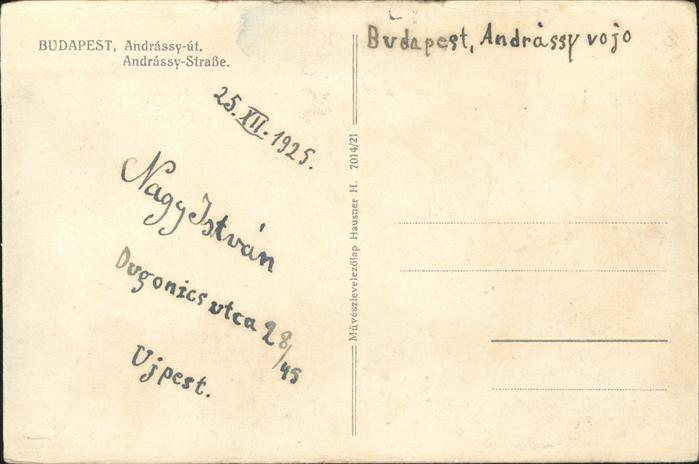 BUDAPEST, Andrássy-út.
Andrássy-Straße.
25. XII. 1925.
Nagy István
Dugonics utca 28/45
Ujpest.
Művészlevelezőlap Hausner H. 7014/21
Budapest, Andrássy vojo